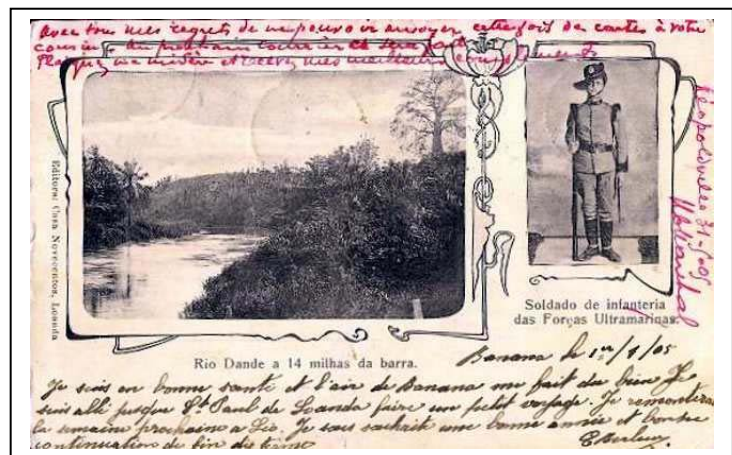 Avec tous mes regrets de ne pouvoir envoyer cette fois de cartes à votre
cousin. Au prochain courrier ce sera fait
et recevez mes meilleurs compliments
Léopoldville 31-5-05
Editora: Casa Novecentos, Loanda
Rio Dande a 14 milhas da barra.
Soldado de infanteria
das Forças Ultramarinas.
Banana le 1er/1/05
Je suis en bonne santé et l'air de Banana me fait du bien Je
suis allé jusque St Paul de Loanda faire un petit voyage. Je remonterai
la semaine prochaine a Léo. Je vous souhait une bonne année et bonne
continuation de fin de terme